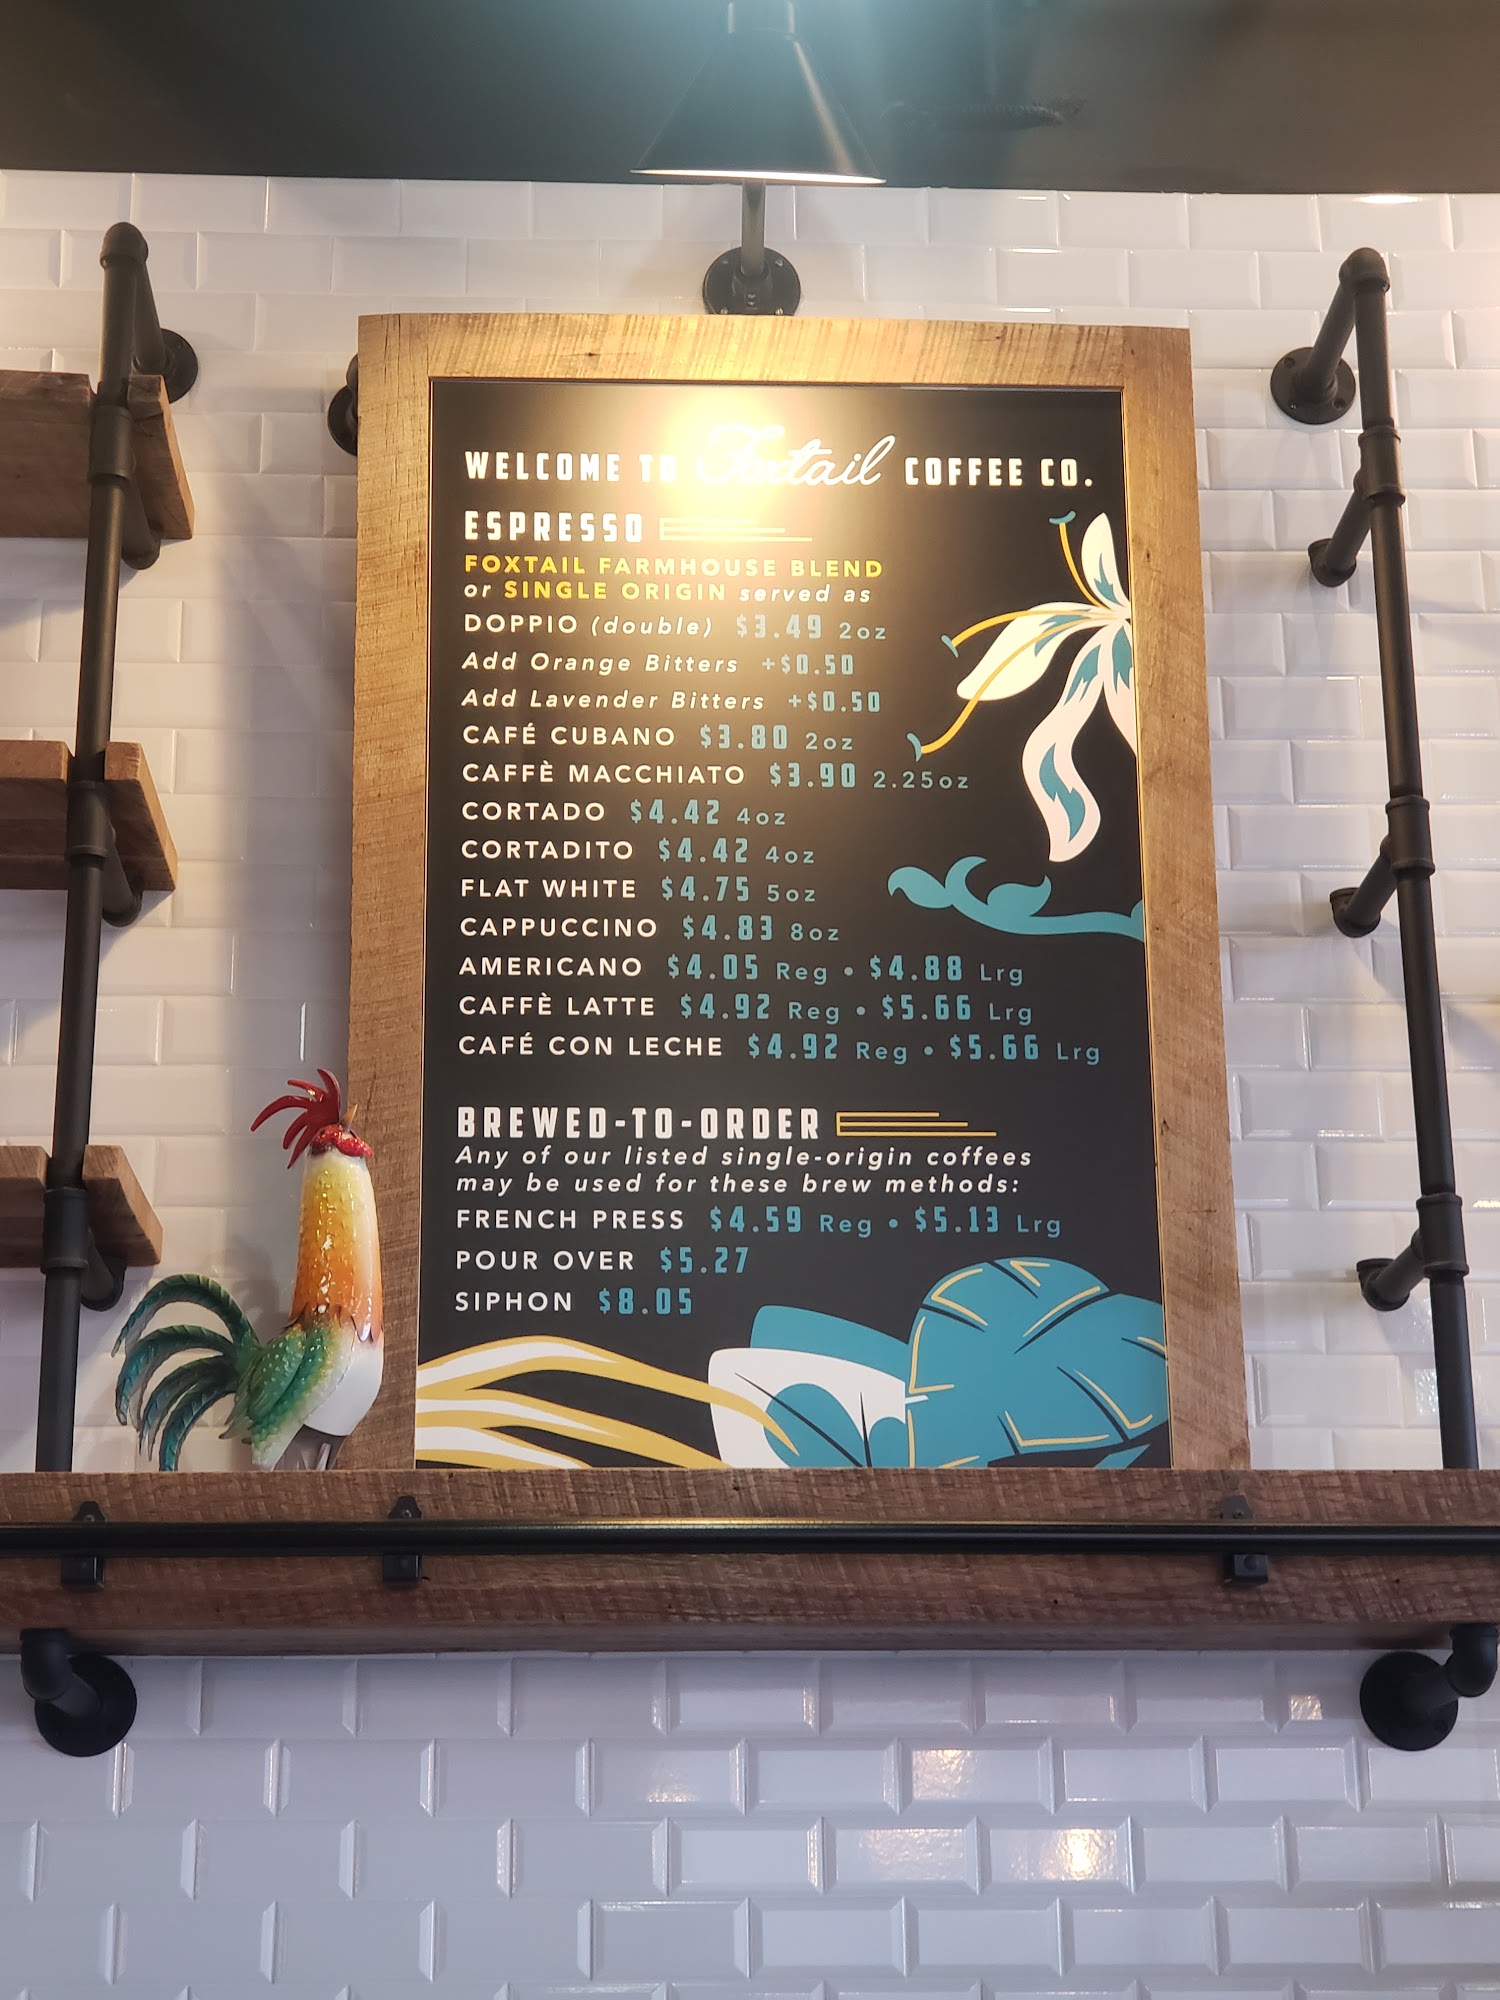 WELCOME TO Foxtail COFFEE CO.
ESPRESSO
FOXTAIL FARMHOUSE BLEND
or SINGLE ORIGIN served as
DOPPIO (double) $3.49 2oz
Add Orange Bitters +$0.50
Add Lavender Bitters +$0.50
CAFÉ CUBANO $3.80 2oz
CAFFÈ MACCHIATO $3.90 2.25oz
CORTADO $4.42 4oz
CORTADITO $4.42 4oz
FLAT WHITE $4.75 5oz
CAPPUCCINO $4.83 8oz
AMERICANO $4.05 Reg • $4.88 Lrg
CAFFÈ LATTE $4.92 Reg • $5.66 Lrg
CAFÉ CON LECHE $4.92 Reg • $5.66 Lrg
BREWED-TO-ORDER
Any of our listed single-origin coffees
may be used for these brew methods:
FRENCH PRESS $4.59 Reg • $5.13 Lrg
POUR OVER $5.27
SIPHON $8.05